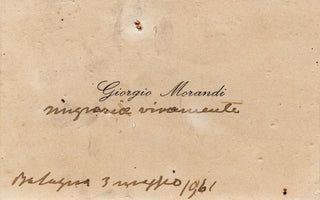 Giorgio Morandi
ringrazia vivamente
Bologna 3 maggio 1961